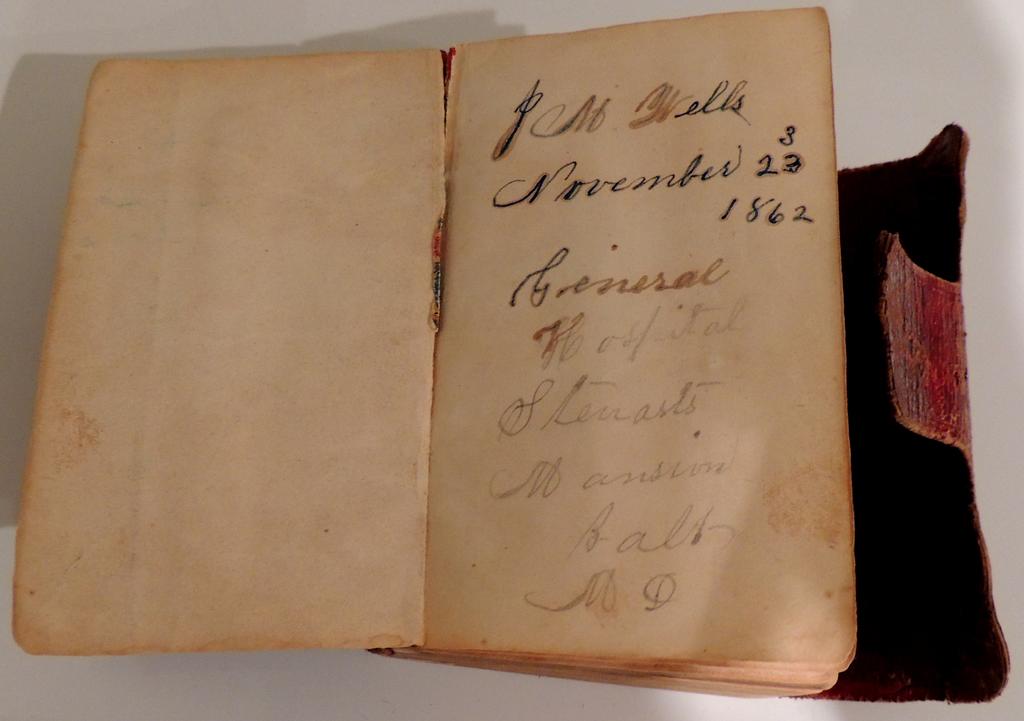 J M Wells
November 23
3
1862
General
Hospital
Stewarts
Mansion
Balt
M D